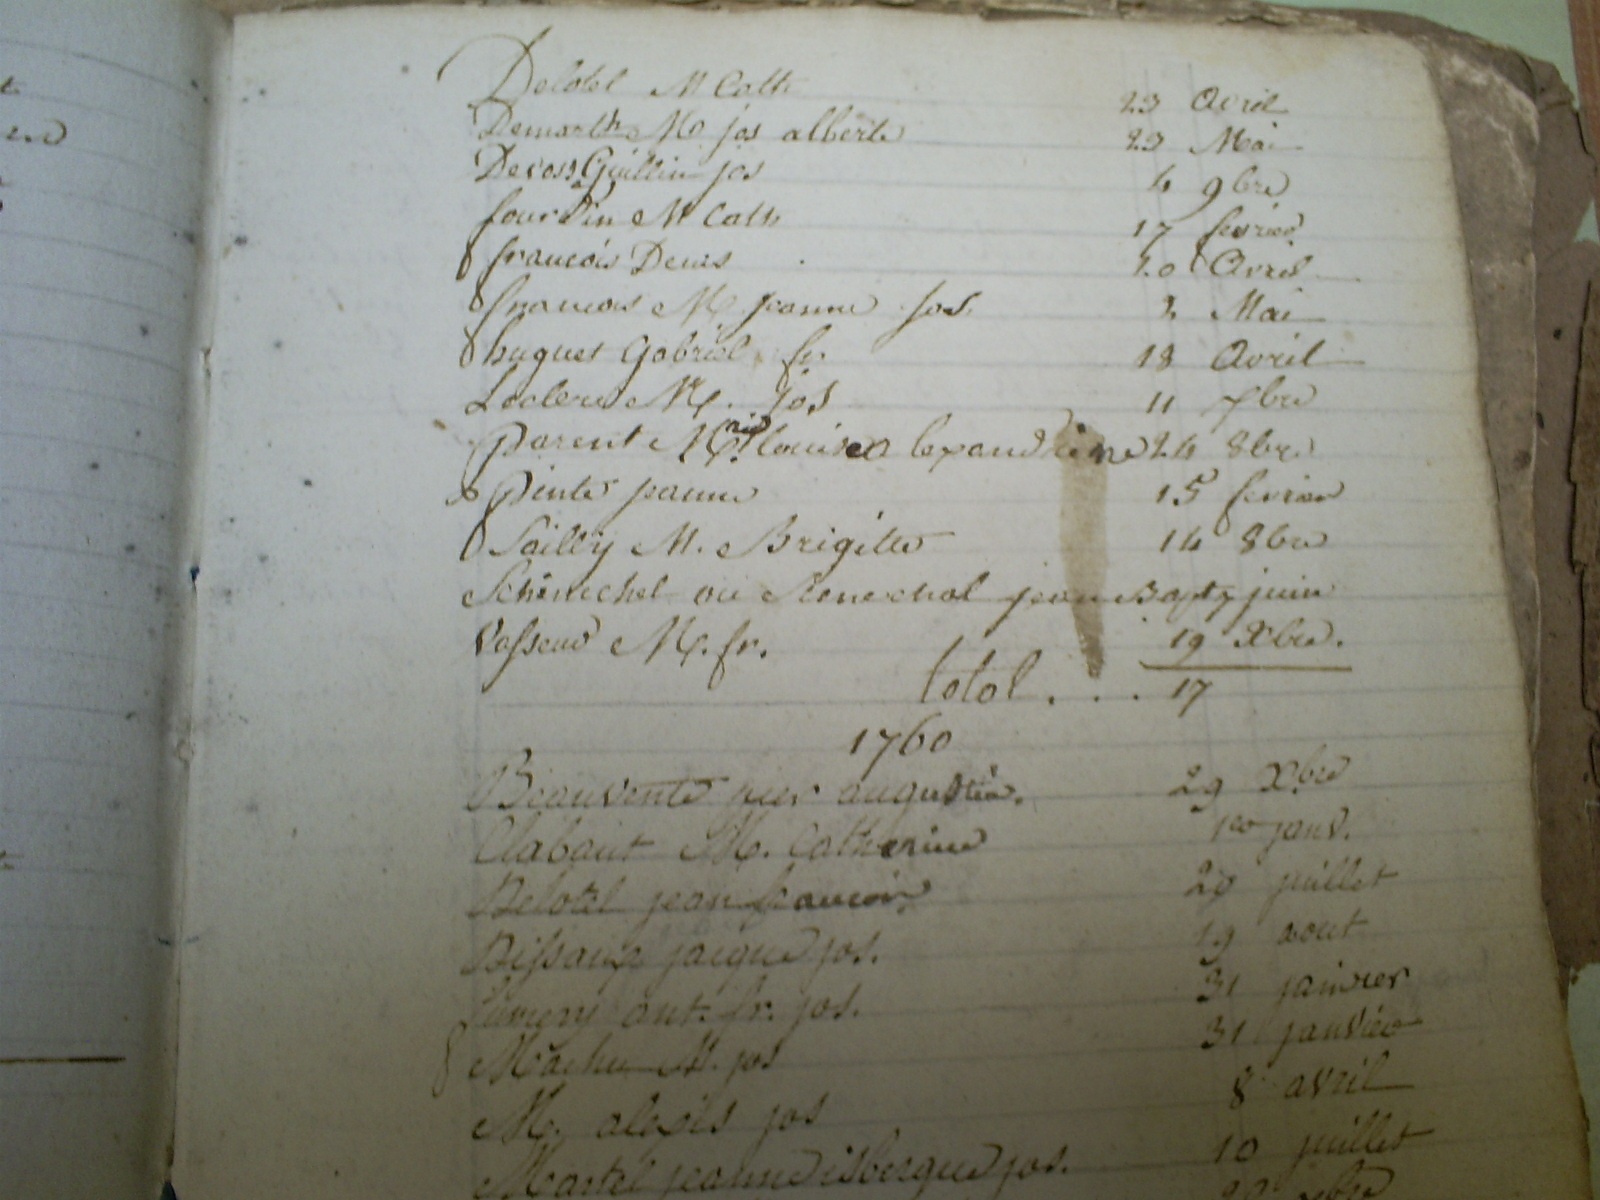 Delotel M Cath 23 Avril
Demarth M jos alberte 23 Mai
Devoss Guillin jos 4 9bre
fourdin M Cath 17 fevrier
francois Denis 20 Avril
francois M jeanne jos. 3 Mai
huguet Gabriel fr. 18 Avril
Leclere M. jos 11 7bre
parent Mrie louise alexandrine 24 8bre
Pinte jeanne 15 fevrier
Sailly M. Brigitte 14 8bre
Schenechel ou Senechal jean Bapt juin
Vasseur M. fr. 19 Xbre.
total . . . 17
1760
Beauvente pier augustin. 29 Xbre
Clabaut M. Catherine 1er janv.
Delotel jean francois 20 juillet
Dissaux jacque jos. 19 aout
ant. fr. jos. 31 janvier
Machu M. jos 31 janvier
M. alexis jos 8 avril
Martel jeanne isbergue jos. 10 juillet